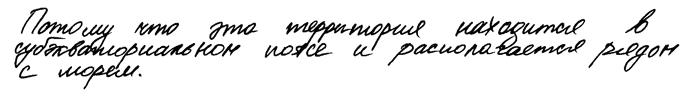 Потому что эта территория находится в
субэкваториальном поясе и располагается рядом
с морем.